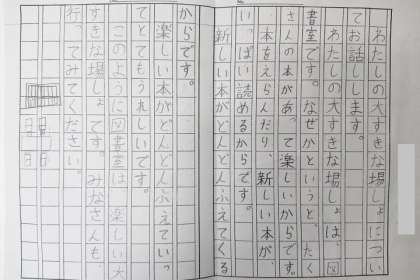 わたしの大すきな場しょについ
てお話しします。
わたしの大すきな場しょは、図
書室です。なぜかというと、たく
さんの本があって楽しいからです。
本をえらんだり、新しい本が、
いっぱい読めるからです。
新しい本がどんどんふえてくる
からです。
楽しい本がどんどんふえていっ
てとてもうれしいです。
このように図書室は、楽しい大
すきな場しょです。みなさんも、
行ってみてください。